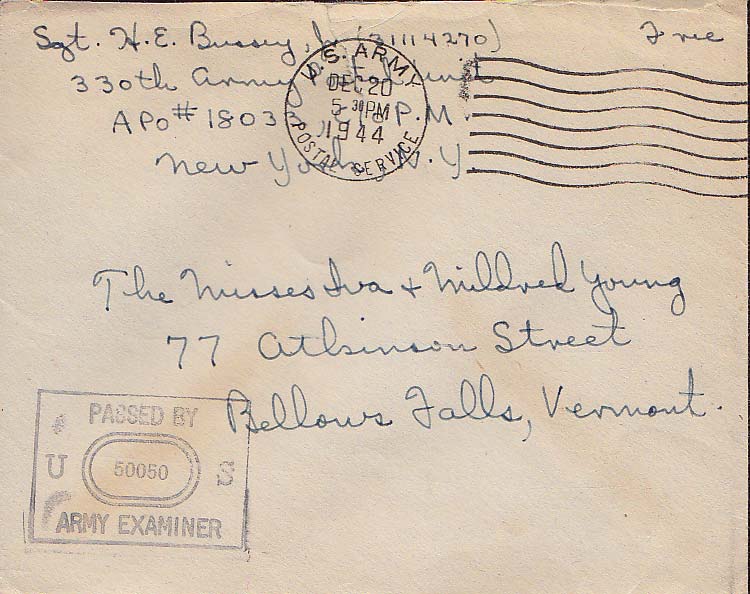 Sgt. H.E. Bussey, Jr (31114270)
Free
330th Army Postal Unit
APO # 18033, c/o P.M.
New York, N.Y.
U.S. ARMY
DEC 20
5 30 PM
1944
POSTAL SERVICE
The Misses Iva + Mildred Young
77 Atkinson Street
Bellows Falls, Vermont.
PASSED BY
U 50050 S
ARMY EXAMINER